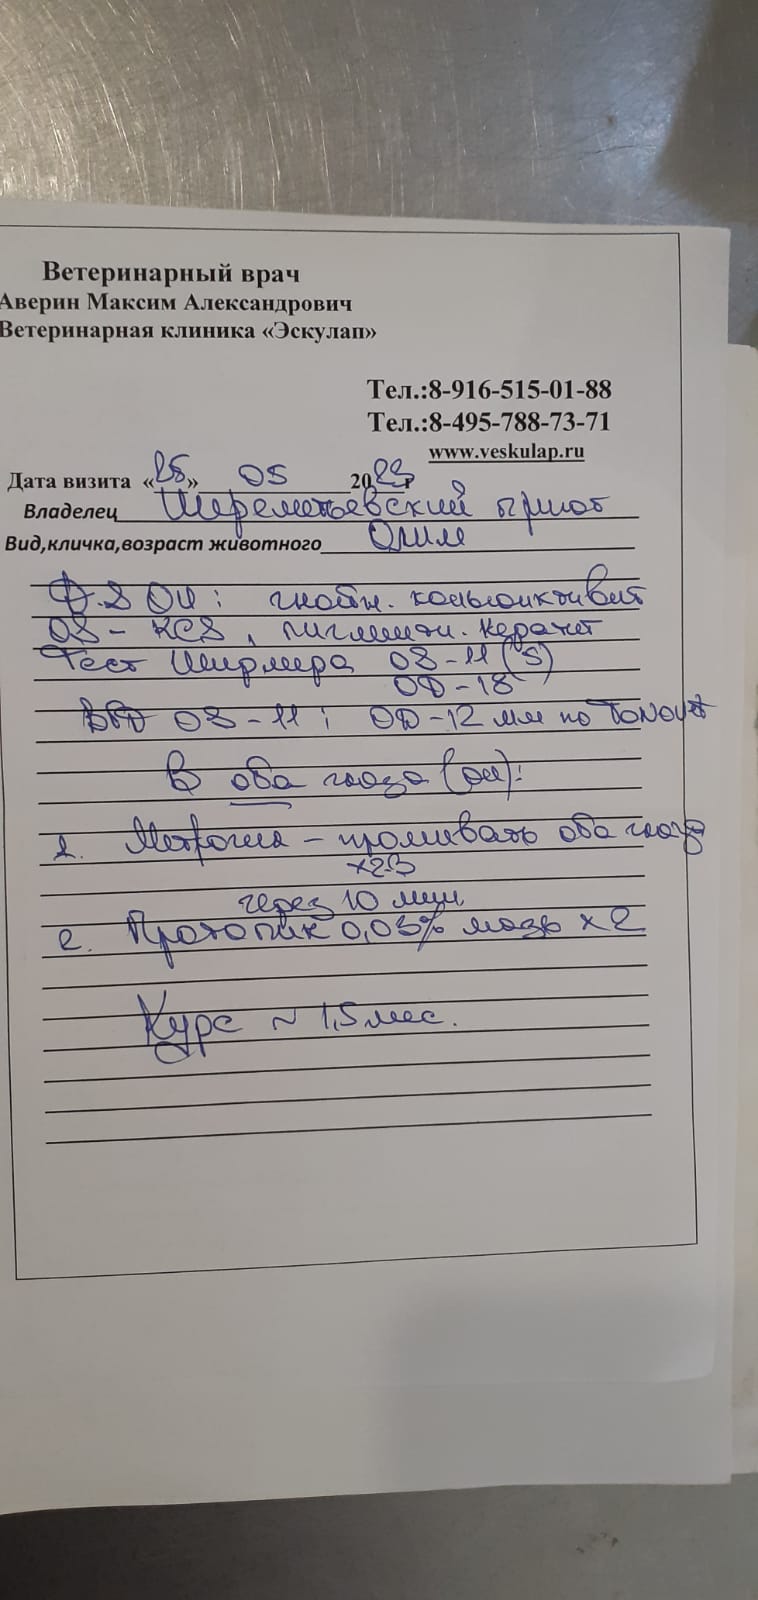 Ветеринарный врач
Аверин Максим Александрович
Ветеринарная клиника «Эскулап»
Тел.:8-916-515-01-88
Тел.:8-495-788-73-71
www.veskulap.ru
Дата визита «25» 05 2023г
Владелец Шереметьевский приют
Вид,кличка,возраст животного
D.S OU: гнойн. коньюнктивит
OS - KCS, пигментн. кератит
Тест Ширмера OS-11 (5)
OD-18
ВГД OS-11; OD-12 мм по TONOVET
В оба глаза (OU):
1. Метрогил - промывать оба глаза
x2-3
через 10 мин
2. Протопик 0,03% мазь x2
Курс ~ 1,5 мес.